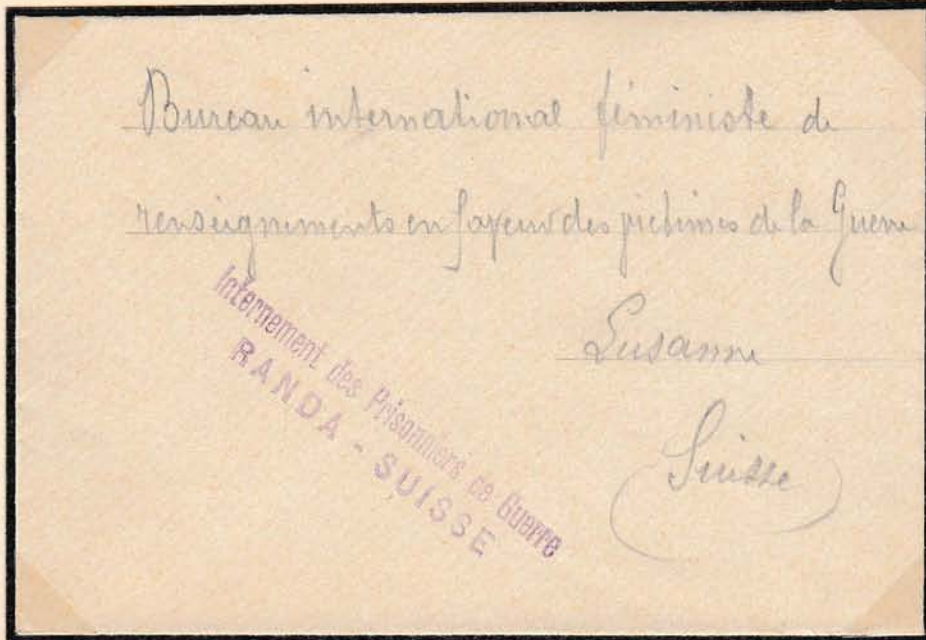 Bureau international féministe de
renseignements en faveur des victimes de la Guerre
Lusanne
Suisse
Internement des Prisonniers de Guerre
RANDA - SUISSE